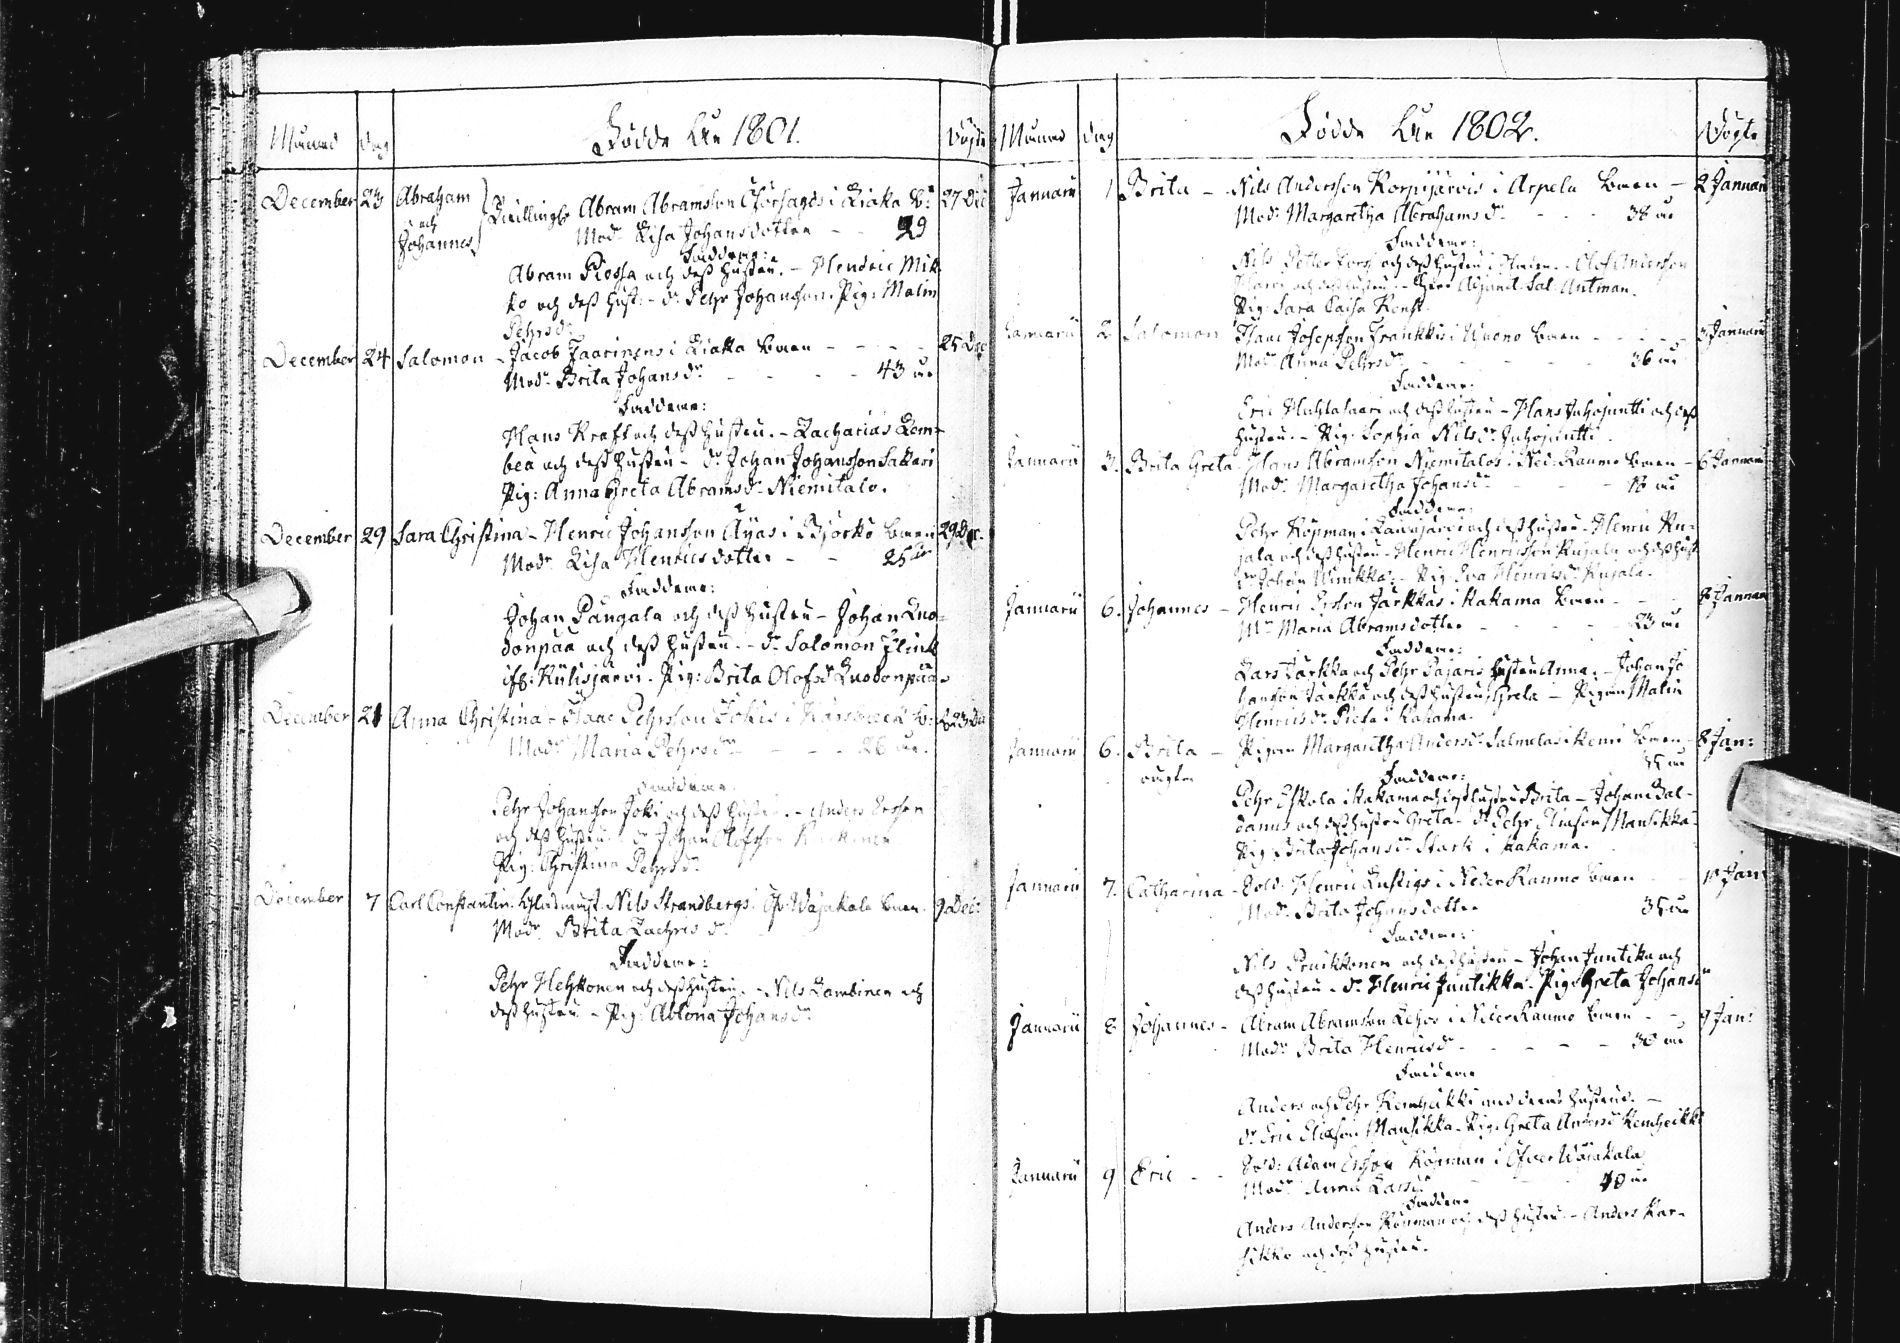 Månad dag Födde År 1801. Döpte
December 23 Abraham och Johannes Twillingb. Abram Abramsson i Liakka B: 27 Dec
Mod: Lisa Johansdotter - - 29
Faddrar:
Abram Piossa och dess hustru. - Hendric Mik
ko och dess hust: - dr. Pehr Johansson. Pig: Malin
Pehrsdr
December 24 Salomon - Jacob Zaarinens i Liakka barn - - - 25 Dec
Modr Brita Johansdr - - - - 43 år
Faddrar:
Hans Kraft och dess hustru. - Zacharias Lom-
bea och dess hustru - dr. Johan Johansson Sakari
Pig: Anna Greta Abramsdr Niemitalo.
December 29 Sara Christina - Henric Johansson Äyäs i Björkö barn 29 De.
Modr Lisa Henricsdotter - - 25 år
Faddrar:
Johan Pängälä och dess hustru - Johan Luo-
donpää och dess hustru. - dr Salomon Flink
if: Külisjärvi. Pig: Brita Olofsd Luodonpää
December 21 Anna Christina - Isaac Pehrsson Jokis i b: 23 De
Modr Maria Pehrsdr - - - 26 år.
Faddrar:
Pehr Johansson Joki och dess hustru. - Anders Ersson
och dess hustru dr Johan Olofsson
Pig: Christina Pehrsdr.
December 7 Carl Constantin Nils Strandbergs i Öf: Wojakala barn. 9 Dec:
Modr Brita Zachris dr.
Faddrar:
Pehr Heykkonen och dess hustru. - Nils Lambinen och
dess hustru - Pig: Ablona Johansdr
Månad dag Födde År 1802. Döpte
Januarii 1 Brita - Nils Andersson Korpijärvis i Arpela barn - 2 Januarii
Modr Margaretha Abrahamsdr - - - 38 år
Faddrar:
Nils Petter och dess hustru i Staden. - Olof Andersson
och dess hustru. - Sal: Antman.
Pig: Sara Caisa
Januarii 2 Salomon Isaac Josephson Frankkis i Wuono barn - - - 3 Januarii
Modr Anna Pehrsdr - - - 36 år
Faddrar:
Eric Huhtasaari och dess hustru - Hans Juhojuntti och dess
hustru. - Pig: Sophia Nilsdr Juhojuntti.
Januarii 3. Brita Greta - Hans Abramsson Niemitalos i Ned: Raumo barn - 6 Januarii
Modr Margaretha Johansdr - - - år
Faddrar:
Pehr Köpman i och dess hustru. Henric Ku-
jala och dess hustru - Henric Henricsson Kujala och dess hust
dr Johan Winikka. - Pig: Eva Henricsdr Kujala.
Januarii 6. Johannes - Henric Ersson Järkkäs i Kakama barn - - 8 Januarii
Mr Maria Abramsdotter - - - 23 år
Faddrar:
Lars Järkkä och Pehr Pajaris hustru Anna. - Johan Jo
hansson Järkkä och dess hustru Greta - Pigan Malin
Henricsdr i Kakama.
Januarii 6. Brita - Pigan Margaretha Andersdr Salmelas i Kemi barn - 8 Jan:
oägta 35 år
Faddrar:
Pehr Eskola i Kakama och dess hustru Brita - Johan Bal-
danus och dess hustru Greta - dr Pehr Eliasson Mansikka
Pig Brita Johansdr Stark i Kakama.
Januarii 7. Catharina - Sold: Henric Lustigs i Neder Raumo barn 10 Jan:
Modr Brita Johansdotter 35 år
Faddrar:
Nils Pruikkonen och dess hustru - Johan Juntikka och
dess hustru - dr Henric Juntikka. Pig: Greta Johansdr
Januarii 8 Johannes - Abram Abramsson Lehos i Neder Raumo barn - - 9 Jan:
Modr Brita Henricsdr - - - - 30 år
Faddrar
Anders och Pehr Kemheikki med deras hustrur. -
dr Eric Eliasson Mansikka - Pig: Greta Andersdr Kemheikki
Januarii 9 Eric - - Sold: Adam Ersson Köpman i Öfver Wojakala
Modr Anna Larsdr - - 40 år
Faddrar
Anders Andersson Köpman och dess hustru. - Anders Kar-
sikko och dess hustru.